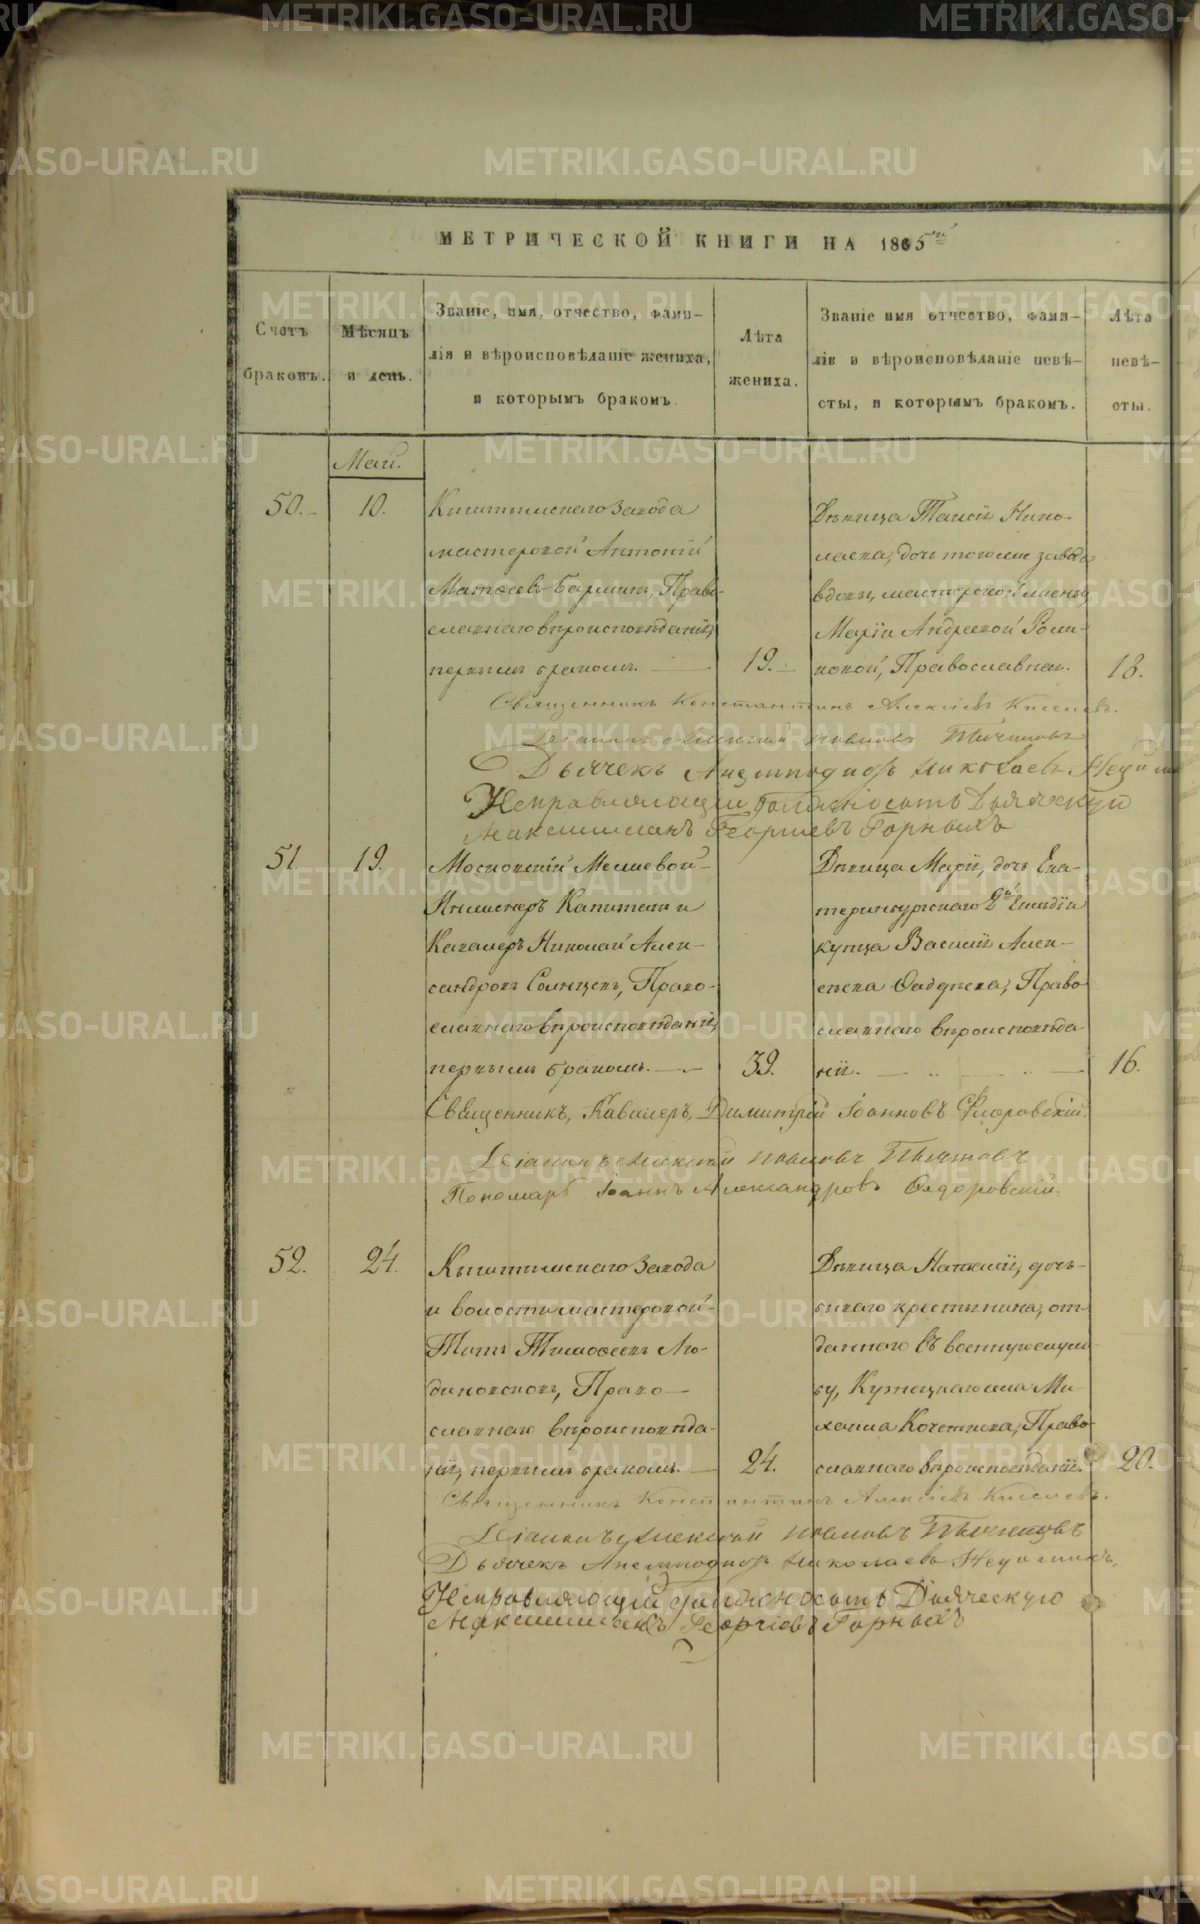 МЕТРИЧЕСКОЙ КНИГИ НА 1865й
Счетъ
браковъ.
Мѣсяцъ
и день.
Званіе, имя, отчество, фами-
лія и вѣроисповѣданіе жениха,
и которымъ бракомъ.
Лѣта
жениха.
Званіе имя отчество, фами-
лія и вѣроисповѣданіе невѣ-
сты, и которымъ бракомъ.
Лѣта
невѣ-
сты.
Май.
50.
10.
Кыштымскаго Завода
мастеровой Антоній
Матѳеевъ Правo-
славнаго вѣроисповѣданія,
первымъ бракомъ.
19.
Дѣвица Таисія Нико-
лаева, дочь тогоже завода
вдовы, мастерской жены,
Маріи Андреевой
Православная.
18.
Священникъ Константинъ Алексіевъ Киселевъ.
Діаконъ Алексій Павловъ
Дьячекъ Анемподистъ Николаевъ
Исправляющій должность Дьяческую
Максимиліанъ Георгіевъ Горныхъ
51
19.
Московскій Межевой
Инженеръ Капитанъ и
Кавалеръ Николай Алек-
сандровъ Солнцевъ, Право-
славнаго вѣроисповѣданія,
первымъ бракомъ.
39.
Дѣвица Марія, дочь Ека-
теринбургскаго 2й Гильдіи
купца Василія Алек-
сѣева Право
славнаго вѣроисповѣда
нія.
16.
Священникъ, Кавалеръ, Димитрій Іоанновъ Флоровскій.
Діаконъ Алексій Павловъ
Пономарь Іоаннъ Александровъ Ѳедоровскій.
52.
24.
Кыштымскаго Завода
и волости мастеровой
Титъ Тимоѳеевъ Лю-
диновсковъ, Право-
славнаго вѣроисповѣда-
нія, первымъ бракомъ.
24.
Дѣвица Наталія, дочь
крестьянина, от-
даннаго въ военную служ-
бу, Ми-
хаила Право-
славнаго вѣроисповѣданія.
20.
Священникъ Константинъ Алексіевъ Киселевъ.
Діаконъ Алексій Павловъ
Дьячекъ Анемподистъ Николаевъ
Исправляющій должность Дьяческую
Максимиліанъ Георгіевъ Горныхъ
METRIKI.GASO-URAL.RU